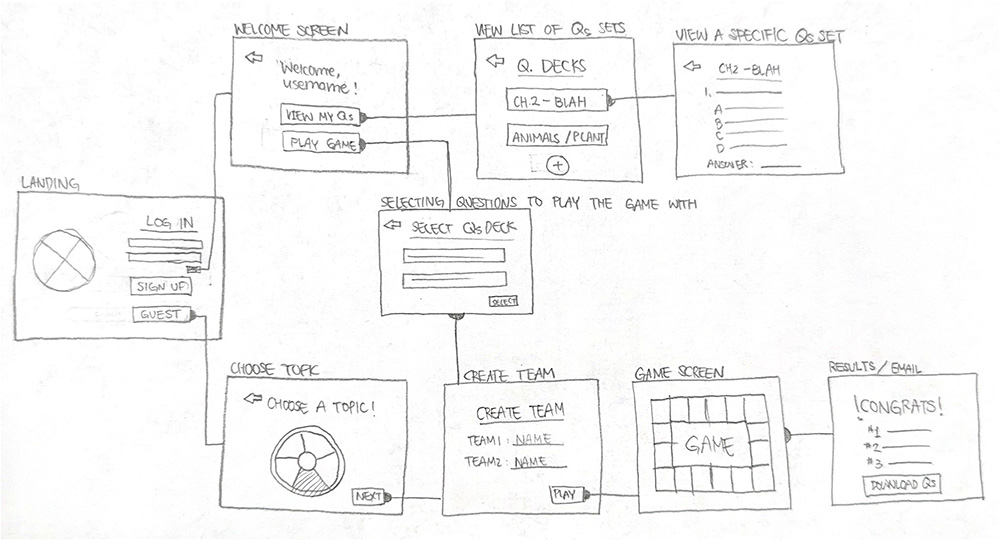 WELCOME SCREEN
Welcome,
username!
VIEW MY Qs
PLAY GAME
VIEW LIST OF Qs SETS
Q. DECKS
CH.2 - BLAH
ANIMALS / PLANT
+
VIEW A SPECIFIC Qs SET
CH2 - BLAH
1.
A
B
C
D
ANSWER:
LANDING
LOG IN
SIGN UP
GUEST
SELECTING QUESTIONS TO PLAY THE GAME WITH
SELECT Qs DECK
SELECT
CHOOSE TOPIC
CHOOSE A TOPIC!
NEXT
CREATE TEAM
CREATE TEAM
TEAM1: NAME
TEAM2: NAME
PLAY
GAME SCREEN
GAME
RESULTS / EMAIL
!CONGRATS!
#1
#2
#3
DOWNLOAD Qs